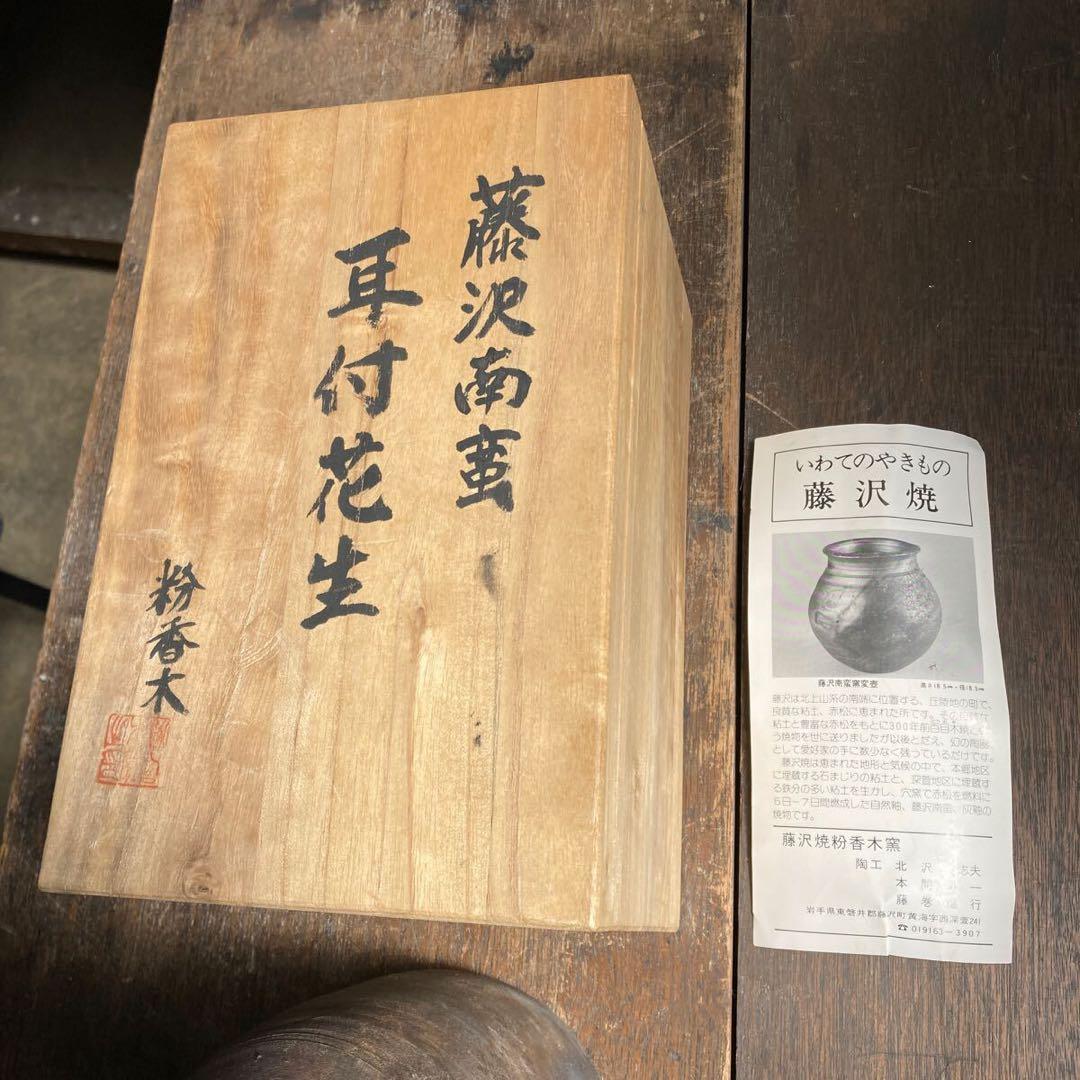 藤沢南蛮
耳付花生
粉香木
いわてのやきもの
藤沢焼
藤沢南蛮窯変壺 高さ18.5cm・径18.5cm
藤沢は北上山系の南端に位置する、丘陵地の町で、
良質な粘土、赤松に恵まれた所です。その良質な
粘土と豊富な赤松をもとに300年前
う焼物を世に送りましたが以後とだえ、幻の陶器
として愛好家の手に数少なく残っているだけです。
藤沢焼は恵まれた地形と気候の中で、本郷地区
に埋蔵する石まじりの粘土と、深萱地区に埋蔵す
る鉄分の多い粘土を生かし、穴窯で赤松を燃料に
5日〜7日間燃成した自然釉、藤沢南蛮、灰釉の
焼物です。
藤沢焼粉香木窯
陶工 北沢 志夫
本間 一
藤巻 行
岩手県東磐井郡藤沢町黄海字西深萱241
☎ 019163-3907